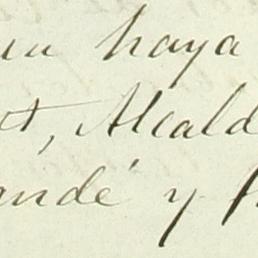 haya
t, Alcald
andé y